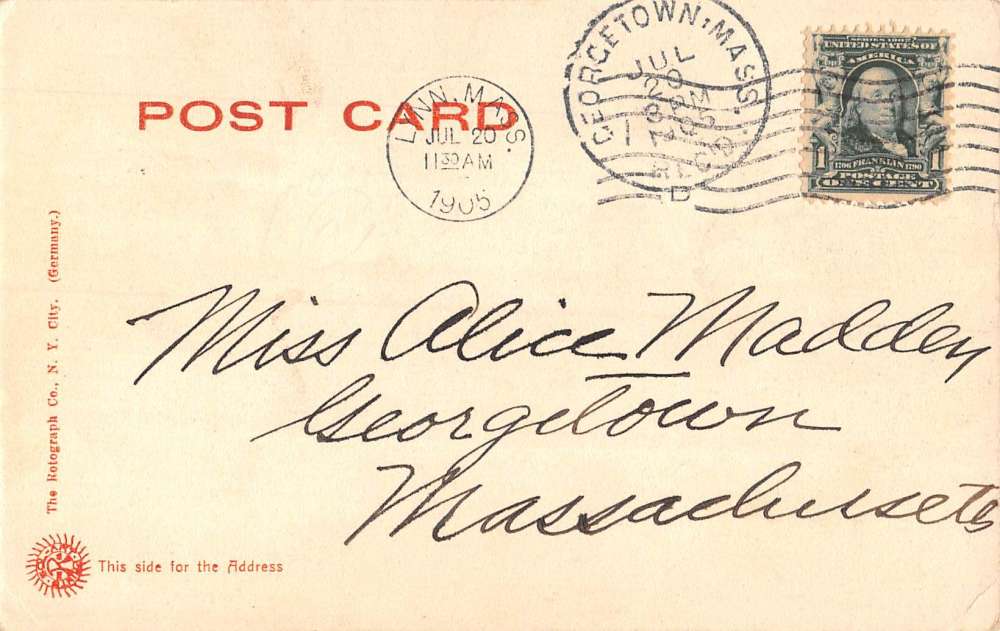 POST CARD
LYNN, MASS.
JUL 20
11 30 AM
1905
GEORGETOWN, MASS.
JUL
20
8 PM
1905
REC'D.
SERIES 1902
UNITED STATES OF
AMERICA
1 1
1706 FRANKLIN 1790
POSTAGE
ONE CENT
Miss Alice Madden
Georgetown
Massachusetts
The Rotograph Co., N. Y. City. (Germany.)
This side for the Address